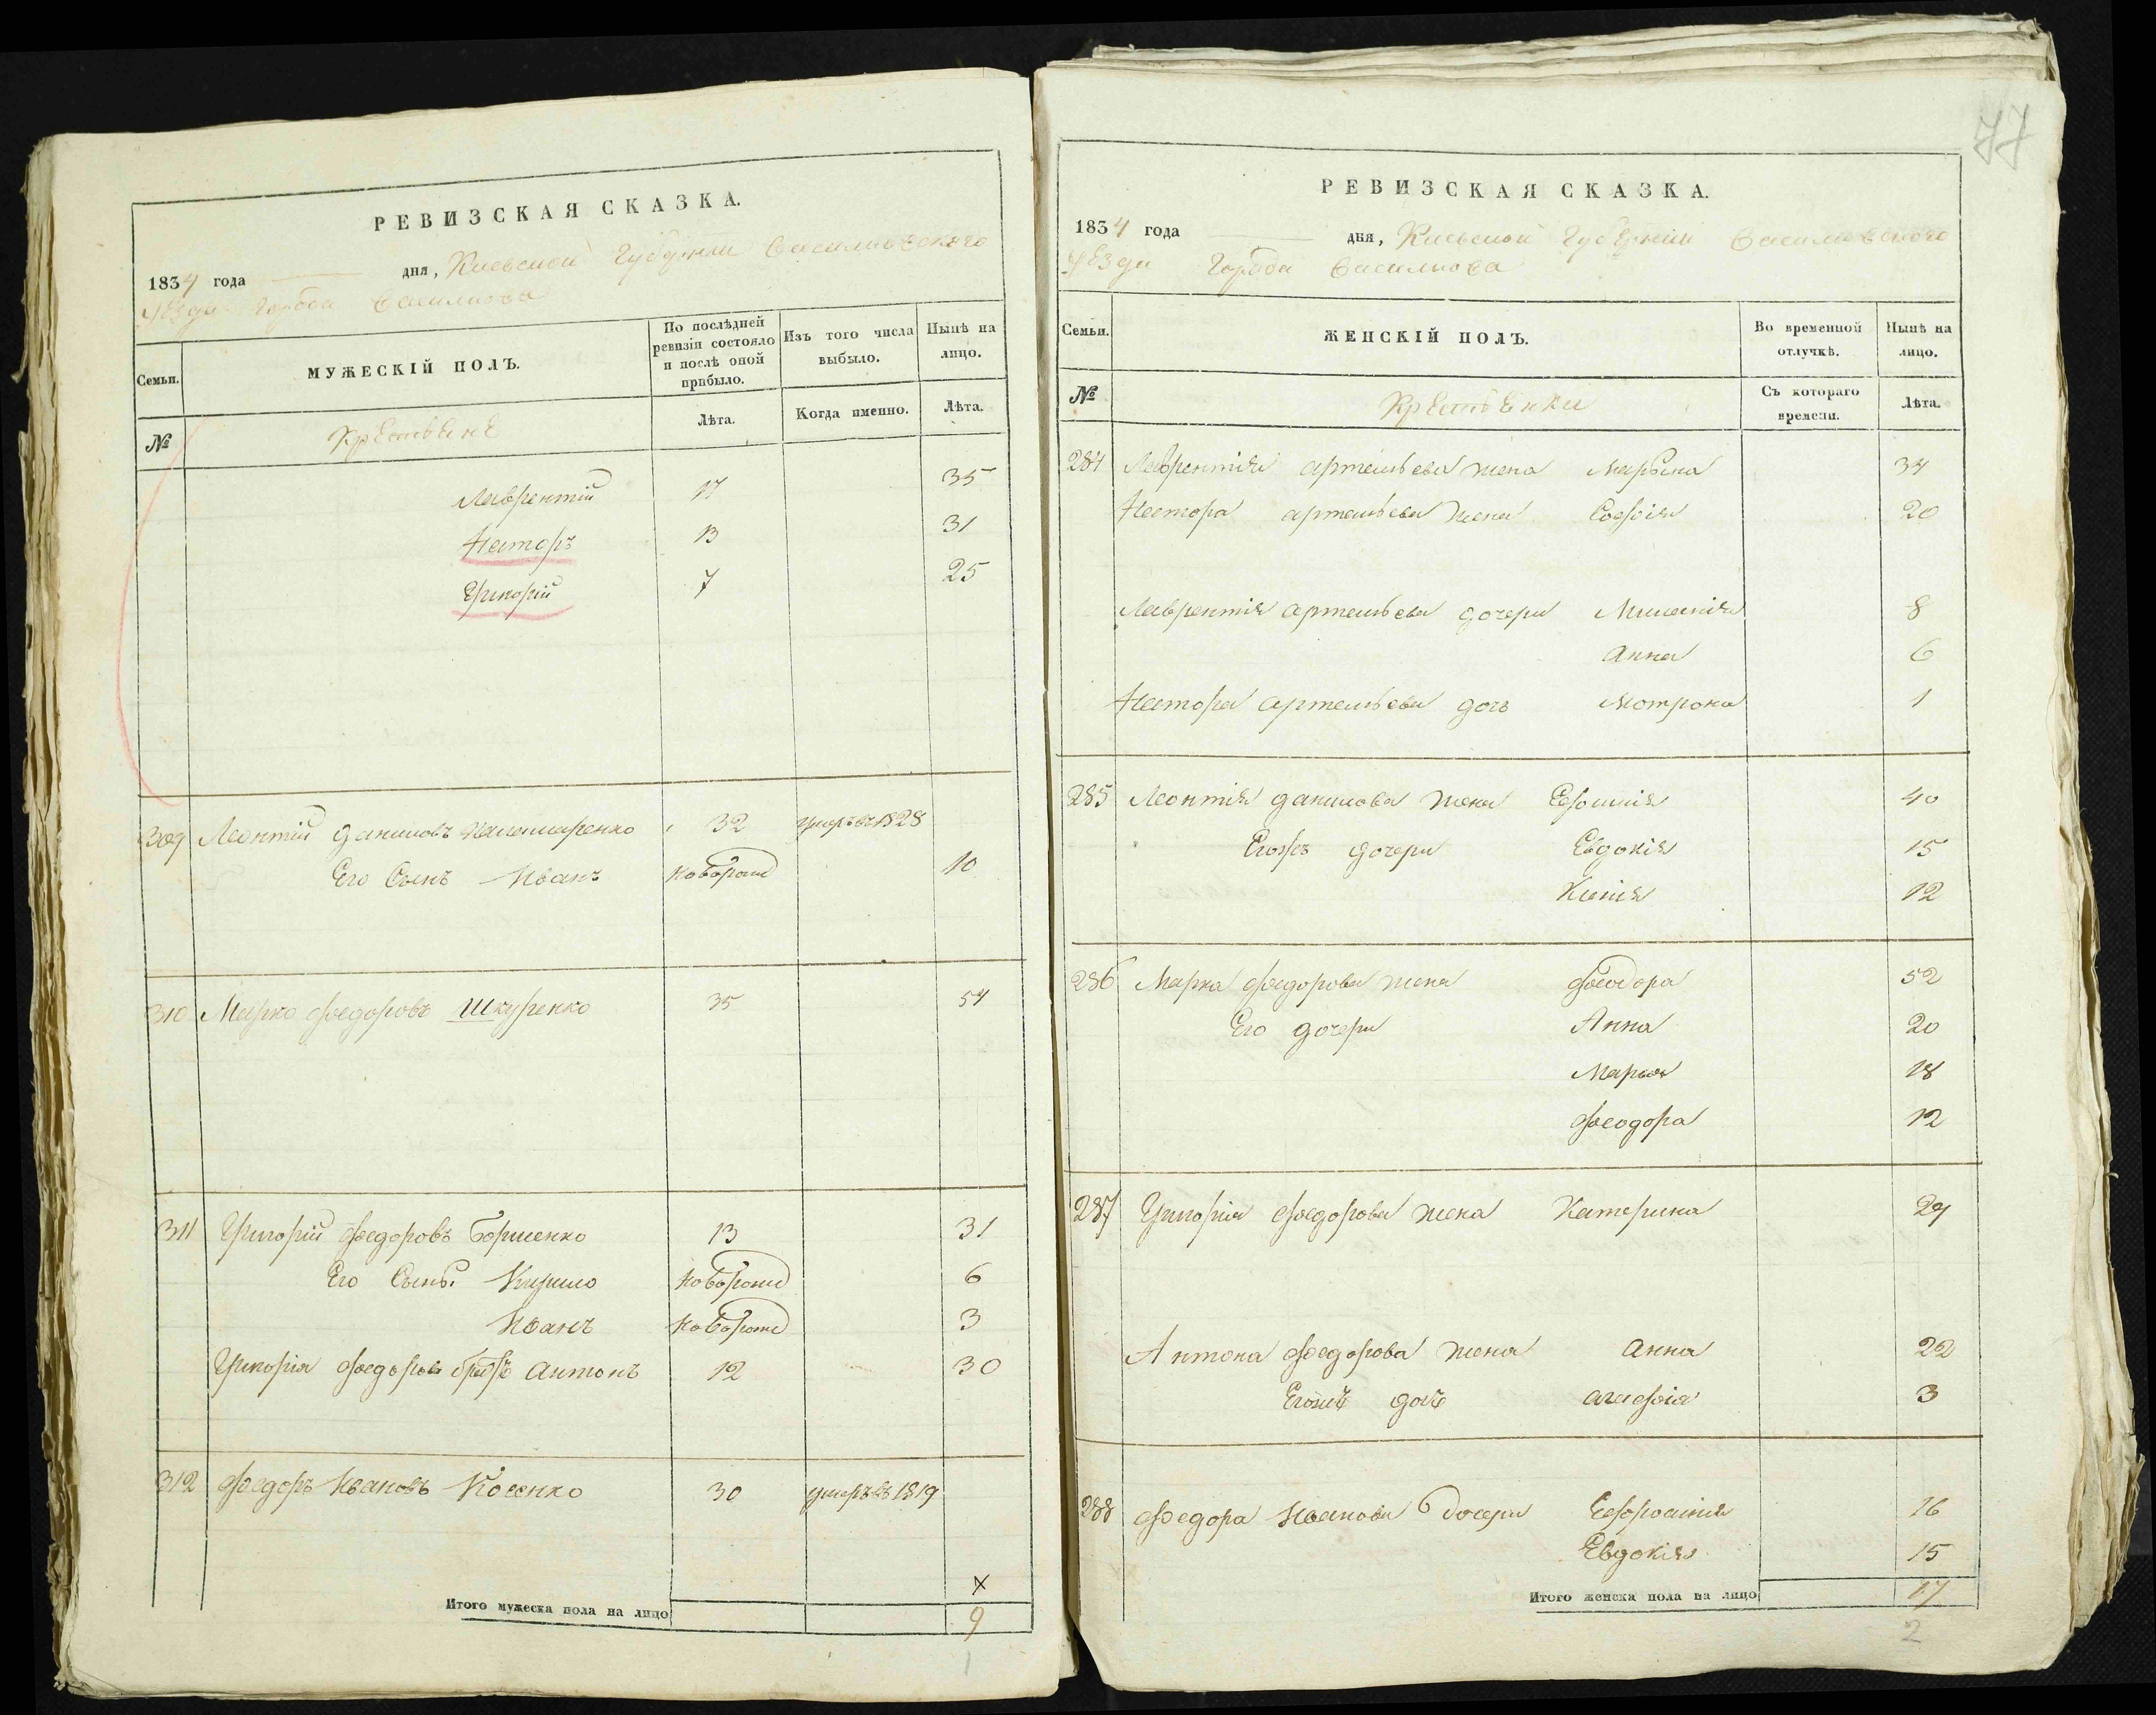 РЕВИЗСКАЯ СКАЗКА.
1834 года дня, Киевской Губернии Василковского
уезда города Василкова
Семьи.
МУЖЕСКІЙ ПОЛЪ.
По послѣдней ревизіи состояло и послѣ оной прибыло.
Изъ того числа выбыло.
Нынѣ на лицо.
№
Лѣта.
Когда именно.
Лѣта.
Лаврентій 17 35
Несторъ 13 31
Григорій 7 25
309 Леонтій Даниловъ 32 умеръ въ 1828
Его Сынъ Иванъ новорожд 10
310 Марко Федоровъ Шкуренко 35 54
311 Григорій Федоровъ Борисенко 13 31
Его Сынъ Кирило новорожд 6
Иванъ новорожд 3
Григорія Федорова братъ Антонъ 12 30
312 Федоръ Ивановъ Косенко 30 умеръ въ 1819
Итого мужеска пола на лицо
9
1
77
РЕВИЗСКАЯ СКАЗКА.
1834 года дня, Киевской Губернии Василковского
уезда города Василкова
Семьи.
ЖЕНСКІЙ ПОЛЪ.
Во временной отлучкѣ.
Нынѣ на лицо.
№
Съ котораго времени.
Лѣта.
284 Лаврентія Артемьева жена Марьяна 34
Нестора Артемьева жена Софія 20
Лаврентія Артемьева дочери 8
Анна 6
Нестора Артемьева дочь Мотрона 1
285 Леонтія Данилова жена 40
дочери Евдокія 15
12
286 Марка Федорова жена Феодора 52
Его дочери Анна 20
Марья 18
Феодора 12
287 Григорія Федорова жена Катерина 29
Антона Федорова жена Анна 22
Егожъ дочь Агафія 3
288 Федора Иванова дочери Ефросинія 16
Евдокія 15
Итого женска пола на лицо
17
2